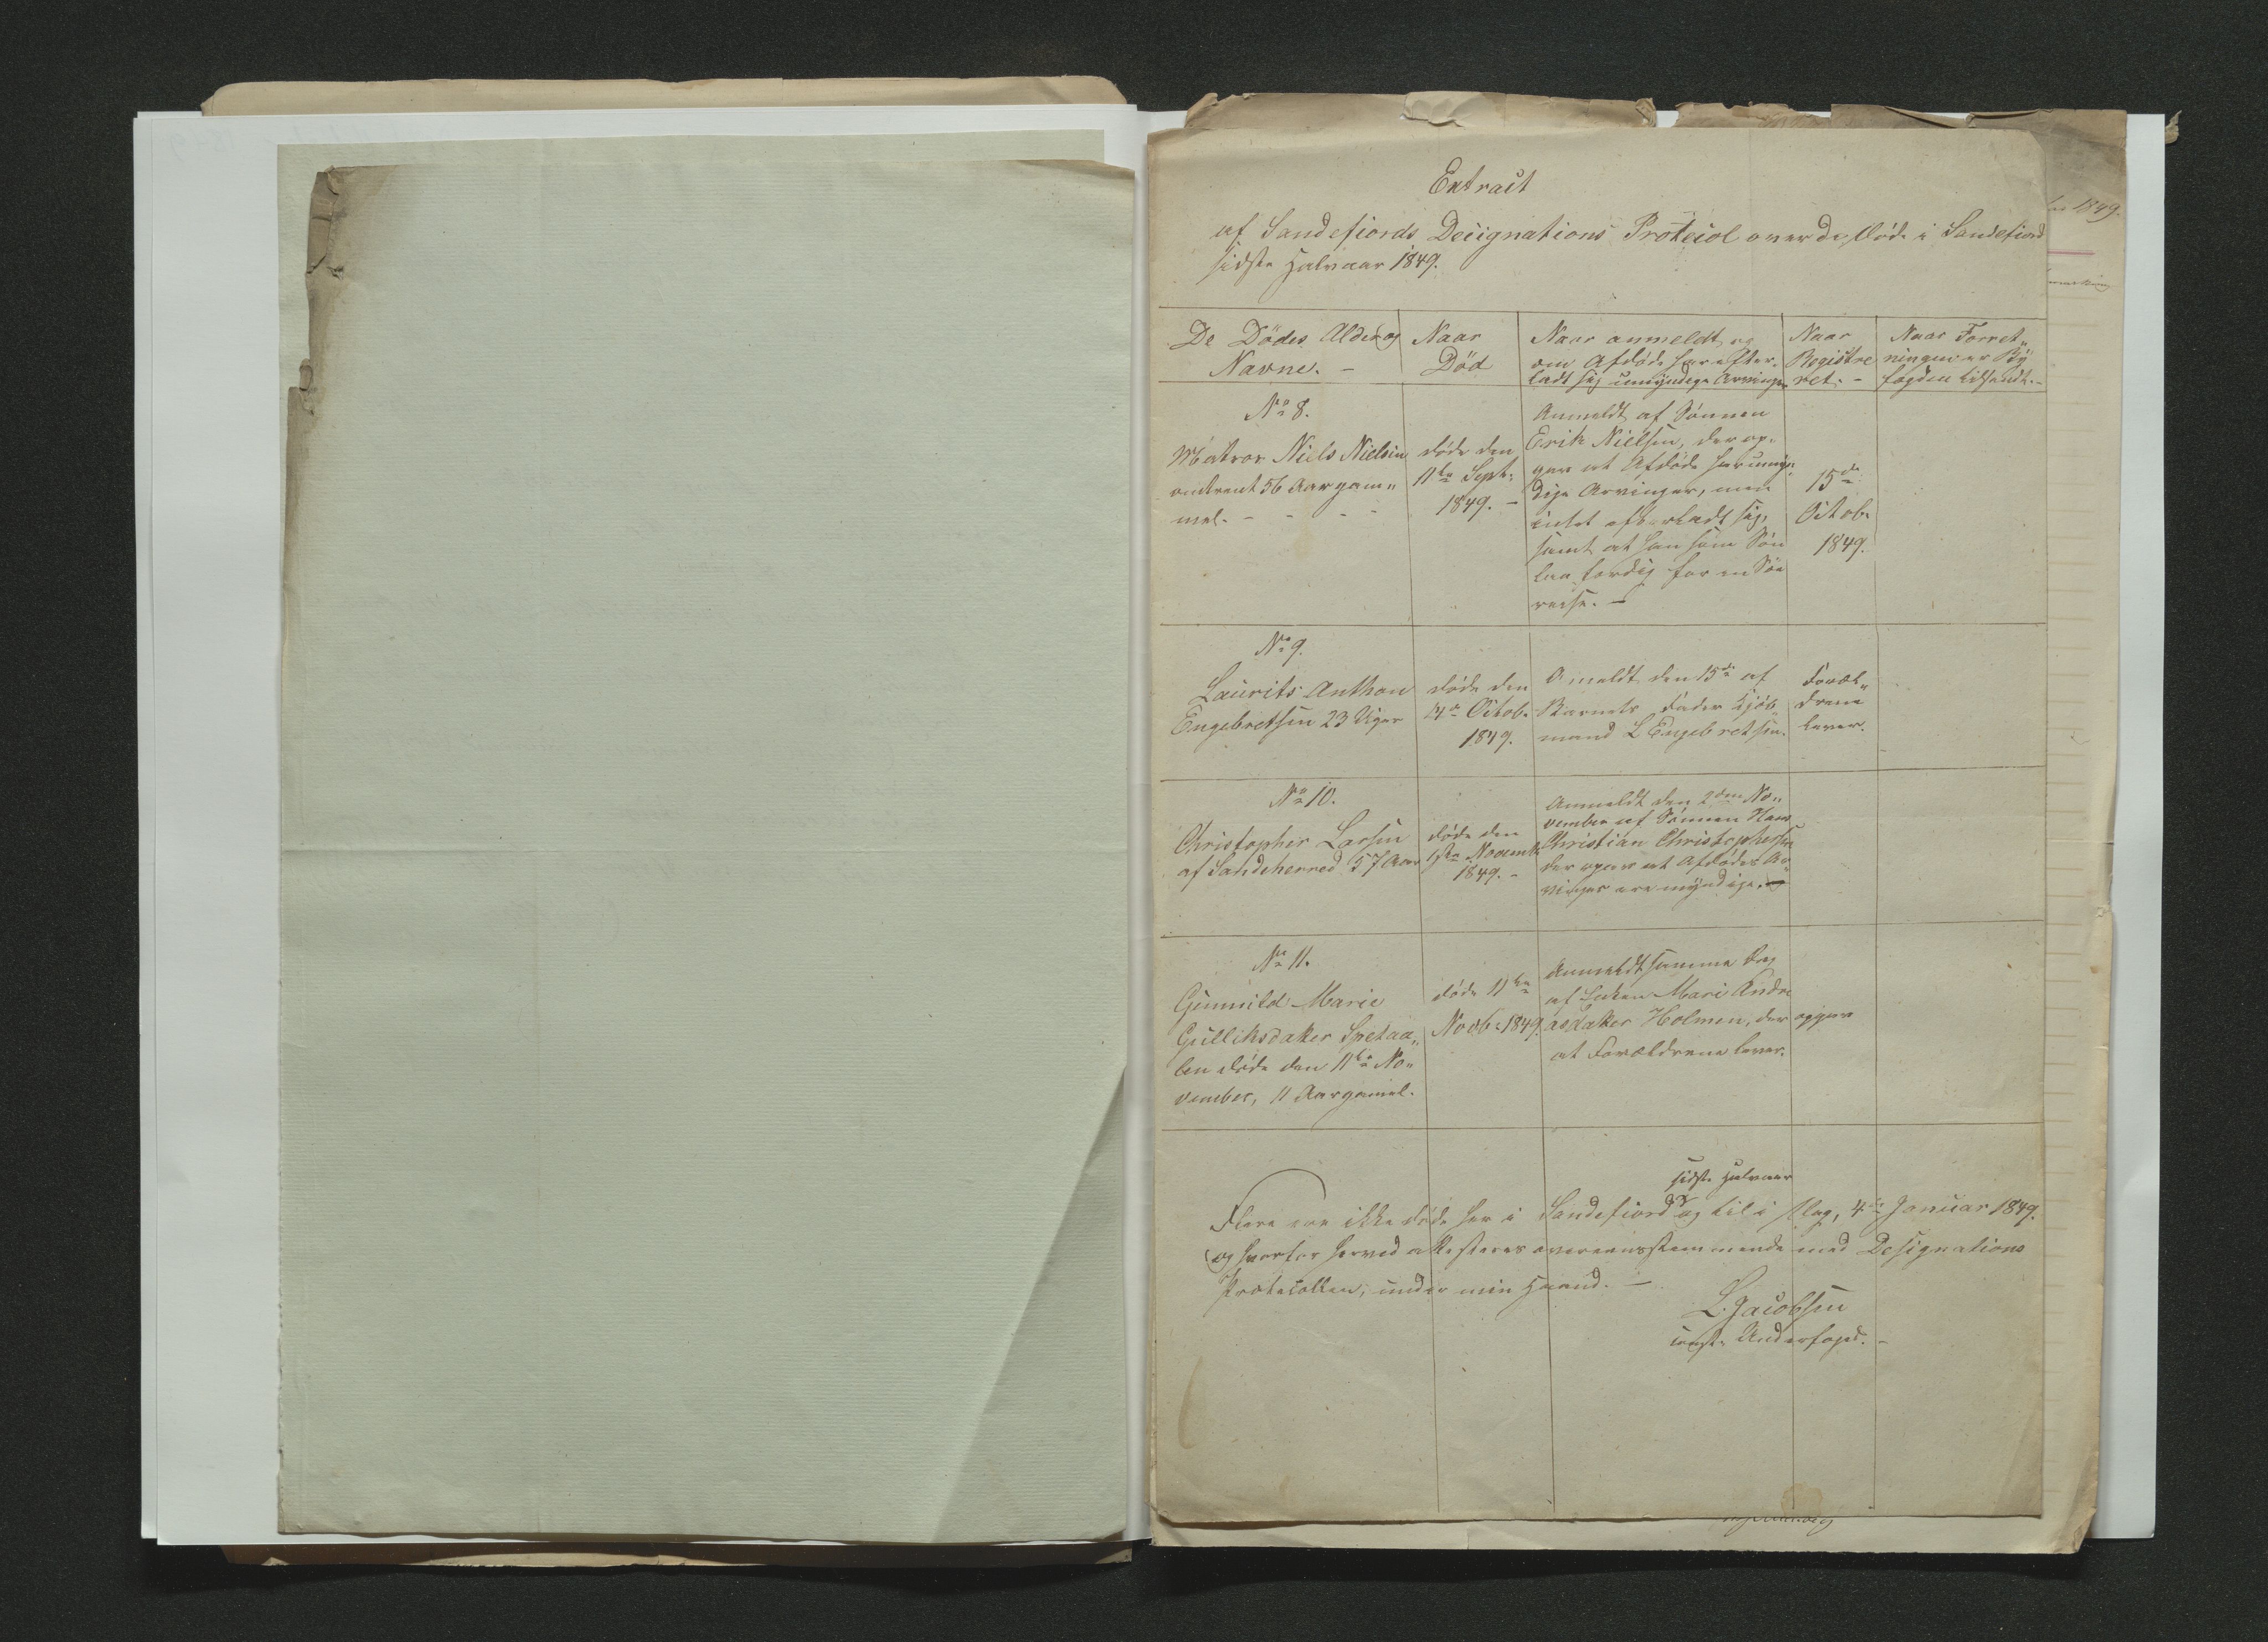 Extract
af Sandefiords Decignations Protecol over de døde i Sandefiord
sidste Halvaar 1849.
De Dödes Alder og
Navne. -
Naar
Död
Naar anmeldt og
om Afdøde har efter-
ladt sig umyndige Arvinger
Naar
Registre
ret. -
Naar Forret„
ningen er By
fogden tilsendt. -
No 8.
Matros Niels Nielsen
omtrent 56 Aar gam„
mel. - - - -
døde den
11te Sept:
1849. -
Anmeldt af Sönnen
Erik Nielsen, der op„
gav at Afdøde har umyn„
dige Arvinger, men
intet efterladt sig,
samt at han som Sön
laa færdig for en Söe
reise. -
15de
Octob:
1849.
No 9.
Laurits Anthon
Engebretsen 23 Uger
døde den
14de Octob:
1849.
Ameldt den 15de af
Barnets Fader Kjøb„
mand L Engebretsen.
Foræl„
drene
lever.
No 10.
Christopher Larsen
af Sandeherred 57 Aar
døde den
1ste Novemb:
1849. -
Anmeldt den 2den No„
vember af Sönnen Hans
Christian Christophersen
der opgav at Afdødes Ar„
vinger ere myndige.
No 11.
Gunnild Marie
Gulliksdatter Spetaa„
len døde den 11te No„
vember, 11 Aar gamel.
døde 11te
Novb: 1849.
Anmeldt samme Dag
af Marie Andre
asdatter Holmen, der opgav
at Forældrene lever.
sidste Halvaar
Flere ere ikke døde her i Sandefiord og til i Dag, 4de Januar 1849.
og hvorfor herved attesteres overeensstemmende med Designations
Protocollen, under min Haand. -
L. Jacobsen
const. Underfoged. -
1849.